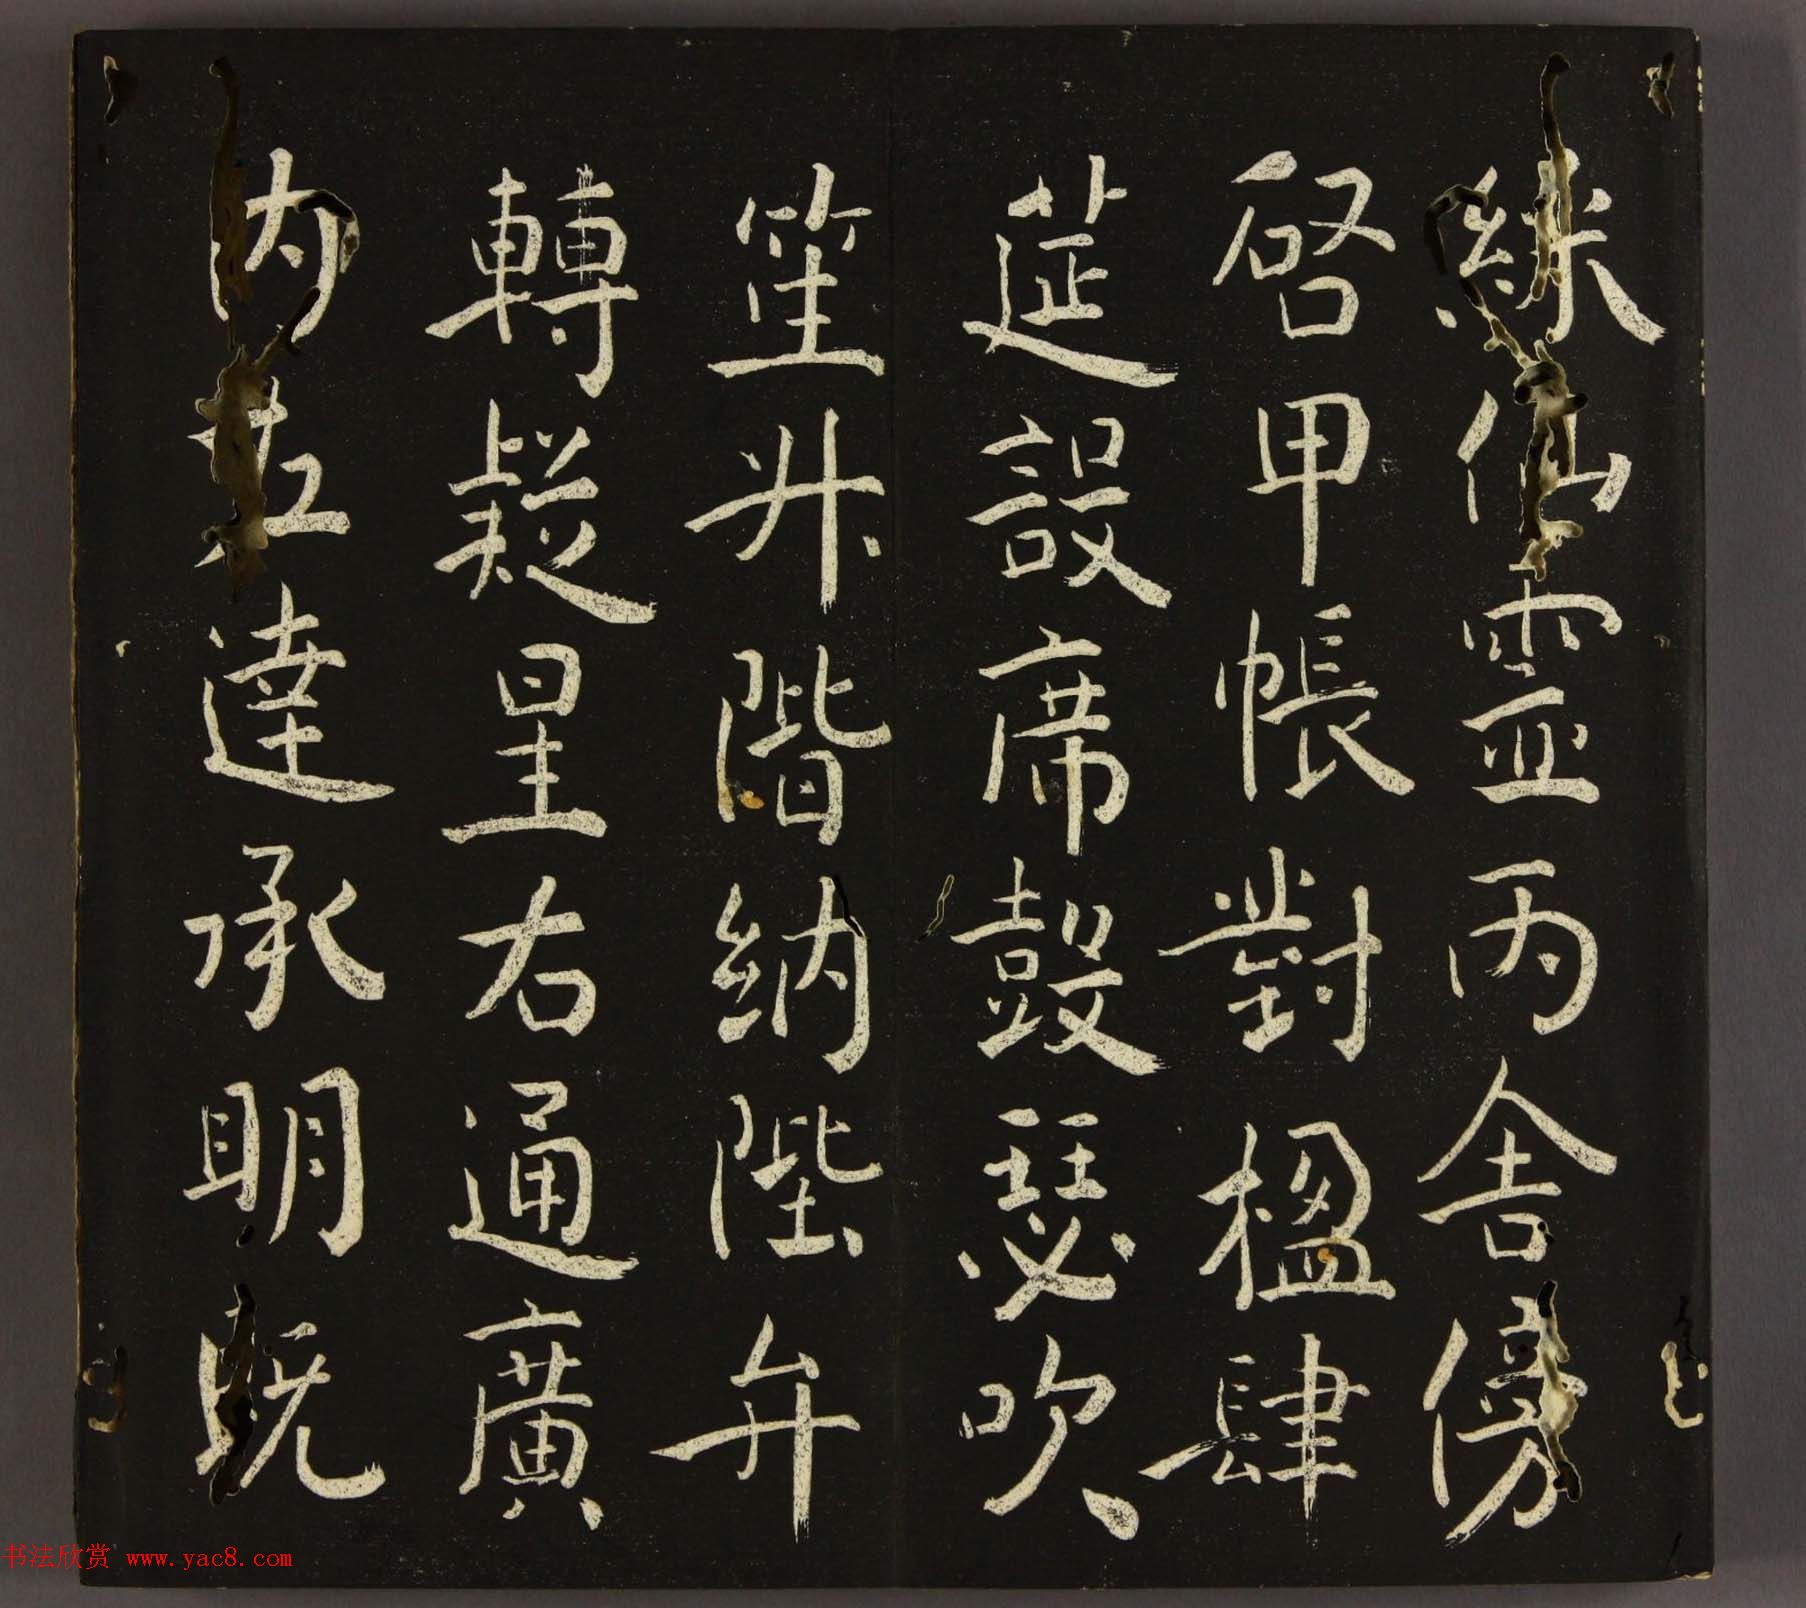 綵仙靈丙舍傍
啓甲帳對楹肆
莚設席鼓瑟吹
笙升階納陛弁
轉疑星右通廣
内左達承明既
书法欣赏 www.yac8.com